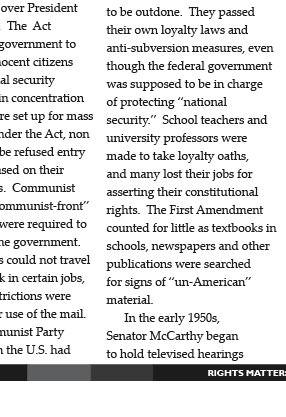 over President
. The Act
government to
nocent citizens
al security
in concentration
re set up for mass
nder the Act, non
be refused entry
sed on their
s. Communist
ommunist-front”
were required to
he government.
s could not travel
k in certain jobs,
trictions were
r use of the mail.
munist Party
n the U.S. had
to be outdone. They passed
their own loyalty laws and
anti-subversion measures, even
though the federal government
was supposed to be in charge
of protecting “national
security.” School teachers and
university professors were
made to take loyalty oaths,
and many lost their jobs for
asserting their constitutional
rights. The First Amendment
counted for little as textbooks in
schools, newspapers and other
publications were searched
for signs of “un-American”
material.
In the early 1950s,
Senator McCarthy began
to hold televised hearings
RIGHTS MATTER: